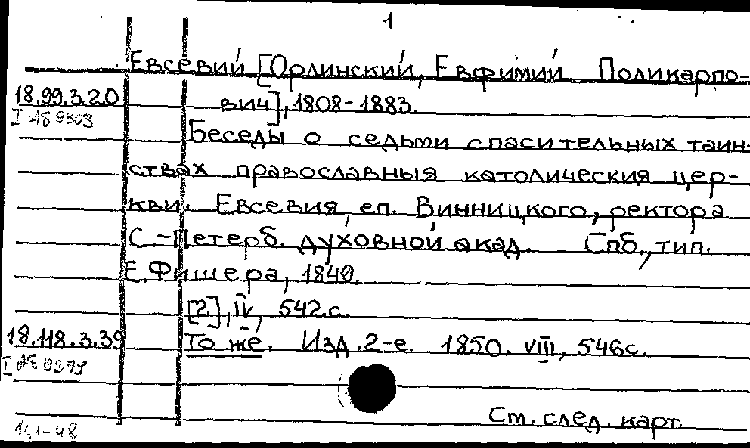 1
Евсевий [Орлинский, Евфимий Поликарпо-
18.99.3.20 вич], 1808-1883.
Беседы о седьми спасительных таин-
ствах православныя католическия цер-
кви. Евсевия, еп. Винницкого, ректора
С.-Петерб. духовной акад. Спб., тип.
Е. Фишера, 1849.
[2], IV, 542 с.
18.118.3.39 То же. Изд. 2-е. 1850. VIII, 546 с.
См. след. карт.
141-48